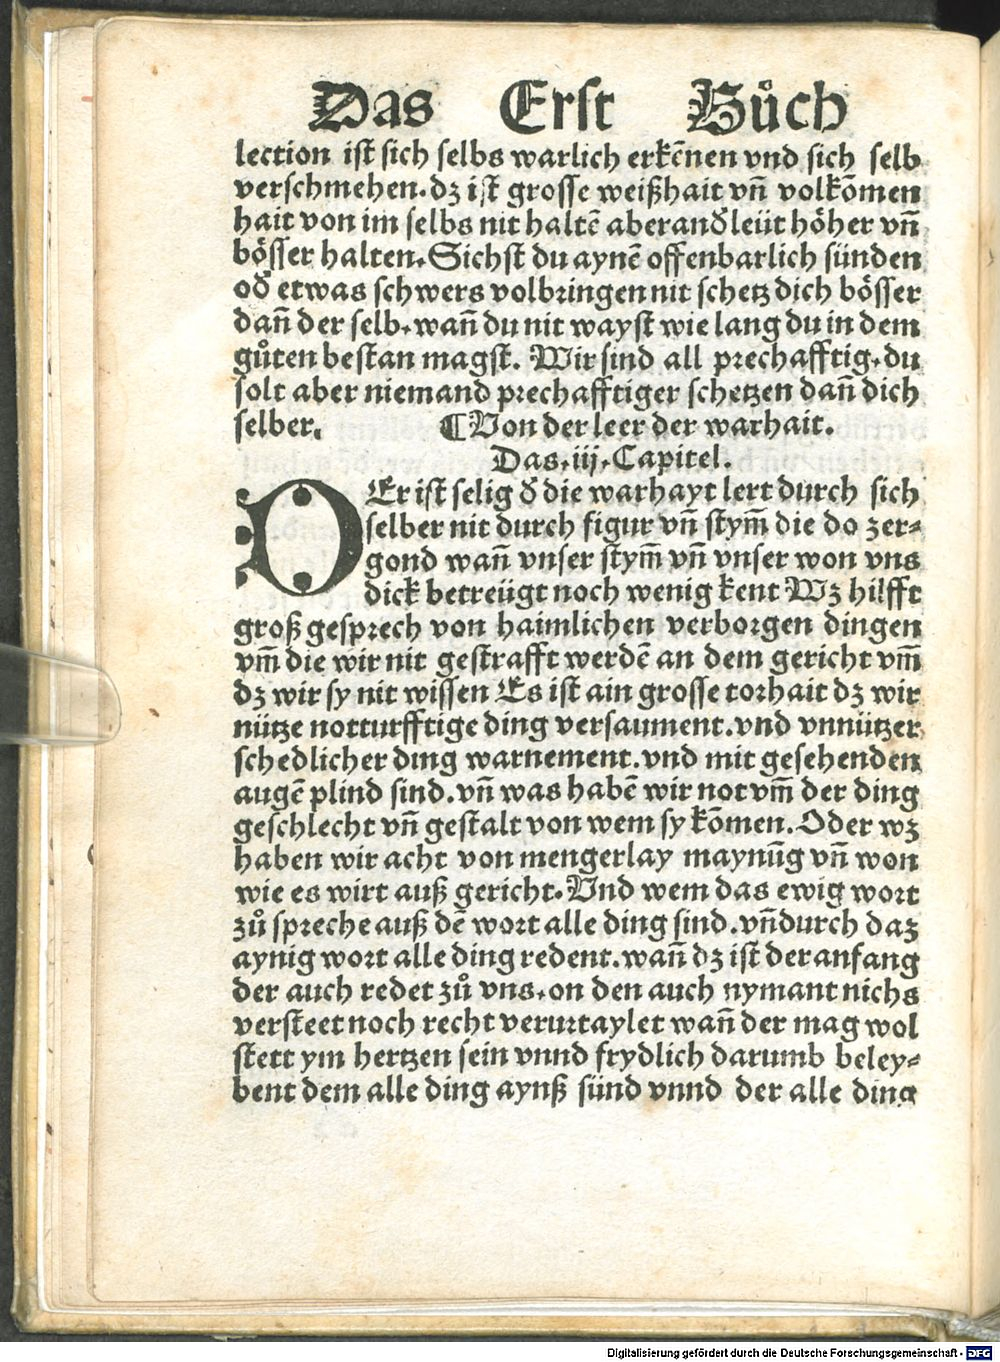 Das Erst Bůch
lection ist sich selbs warlich erkēnen vnd sich selb
verschmehen. dz ist grosse weißhait vn̄ volkōmen
hait von im selbs nit haltē aber and͛leüt höher vn̄
bösser halten. Sichst du aynē offenbarlich sünden
od͛ etwas schwers volbringen nit schetz dich bösser
dan̄ der selb. wan̄ du nit wayst wie lang du in dem
gůten bestan magst. Wir sind all prechafftig. du
solt aber niemand prechafftiger schetzen dan̄ dich
selber. ¶ Von der leer der warhait.
Das. iij. Capitel.
DEr ist selig d͛ die warhayt lert durch sich
selber nit durch figur vn̄ stym̄ die do zer⸗
gond wan̄ vnser stym̄ vn̄ vnser won vns
dick betreügt noch wenig kent Wz hilfft
groß gesprech von haimlichen verborgen dingen
vm̄ die wir nit gestrafft werdē an dem gericht vm̄
dz wir sy nit wissen Es ist ain grosse torhait dz wir
nütze notturfftige ding versaument. vnd vnnützer
schedlicher ding warnement. vnd mit gesehenden
augē plind sind. vn̄ was habē wir not vm̄ der ding
geschlecht vn̄ gestalt von wem sy kōmen. Oder wz
haben wir acht von mengerlay maynūg vn̄ won
wie es wirt auß gericht. Vnd wem das ewig wort
zů spreche auß dē wort alle ding sind. vn̄durch daz
aynig wort alle ding redent. wan̄ dz ist der anfang
der auch redet zů vns. on den auch nymant nichs
versteet noch recht verurtaylet wan̄ der mag wol
stett ym hertzen sein vnnd frydlich darumb beley⸗
bent dem alle ding aynß sünd vnnd der alle ding
Digitalisierung gefördert durch die Deutsche Forschungsgemeinschaft - DFG